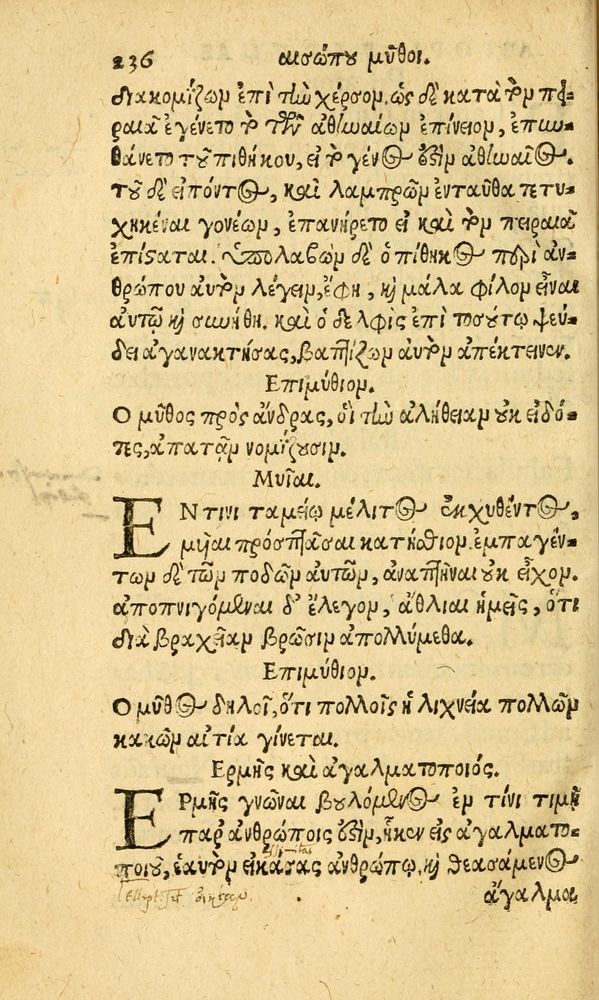 236 αισώπου μῦθοι.
διακομίζων ἐπὶ τὴν χέρσον. ὡς δὲ κατὰ τὸν πει-
ραιᾶ ἐγένετο τὸ τῶν ἀθηναίων ἐπίνειον, ἐπυν-
θάνετο τοῦ πιθήκου, εἰ τὸ γένος ἐστὶν ἀθηναῖος.
τοῦ δὲ εἰπόντος, καὶ λαμπρῶν ἐνταῦθα τετυ-
χηκέναι γονέων, ἐπανήρετο εἰ καὶ τὸν πειραιᾶ
ἐπίσταται. ὑπολαβὼν δὲ ὁ πίθηκος περὶ ἀν-
θρώπου αὐτὸν λέγειν, ἔφη, καὶ μάλα φίλον εἶναι
αὐτῷ καὶ συνήθη. καὶ ὁ δελφὶς ἐπὶ τοσούτῳ ψεύ-
δει ἀγανακτήσας, βαπτίζων αὐτὸν ἀπέκτεινεν.
Ἐπιμύθιον.
Ο μῦθος πρὸς ἄνδρας, οἳ τὴν ἀλήθειαν οὐκ εἰδό-
τες, ἀπατᾶν νομίζουσιν.
Μυῖαι.
ΕΝ τινι ταμείῳ μέλιτος ἐκχυθέντος,
μυῖαι προσπτᾶσαι κατήσθιον. ἐμπαγέν-
των δὲ τῶν ποδῶν αὐτῶν, ἀναπτῆναι οὐκ εἶχον.
ἀποπνιγόμεναι δ' ἔλεγον, ἄθλιαι ἡμεῖς, ὅτι
διὰ βραχεῖαν βρῶσιν ἀπολλύμεθα.
Ἐπιμύθιον.
Ο μῦθος δηλοῖ, ὅτι πολλοῖς ἡ λιχνεία πολλῶν
κακῶν αἰτία γίνεται.
Ερμῆς καὶ ἀγαλματοποιός.
ΕΡμῆς γνῶναι βουλόμενος ἐν τίνι τιμῇ
παρ' ἀνθρώποις ἐστὶν, ἧκεν εἰς ἀγαλματο-
ποιοῦ, ἑαυτὸν εἰκάσας ἀνθρώπῳ, καὶ θεασάμενος
ἄγαλμα